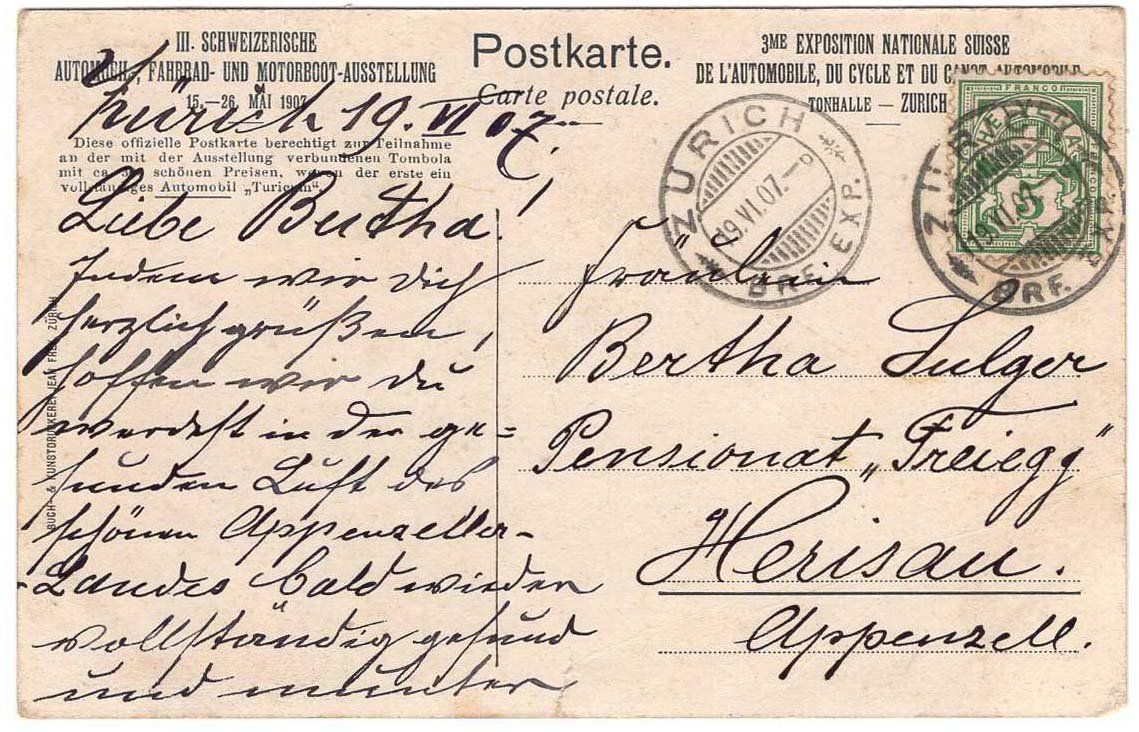 III. SCHWEIZERISCHE
AUTOMOBIL-, FAHRRAD- UND MOTORBOOT-AUSSTELLUNG
15.—26. MAI 1907
Postkarte.
Carte postale.
3ME EXPOSITION NATIONALE SUISSE
DE L'AUTOMOBILE, DU CYCLE ET DU CANOT AUTOMOBILE
TONHALLE — ZURICH
Zürich 19. VI 07.
Diese offizielle Postkarte berechtigt zur Teilnahme
an der mit der Ausstellung verbundenen Tombola
mit ca. schönen Preisen, wovon der erste ein
vollständiges Automobil „Turicum".
Liebe Bertha!
Indem wir dich
herzlich grüßen,
hoffen wir du
werdest in der ge=
sunden Luft des
schönen Appenzeller-
Landes bald wieder
vollständig gesund
und munter
BUCH- & KUNSTDRUCKEREI JEAN FREY, ZÜRICH
ZÜRICH
19.VI.07.
BRF. EXP.
FRANCO
5
19.VI.07.
BRF. EXP.
Fräulein
Bertha Sulger
Pensionat „Freiegg"
Herisau.
Appenzell.